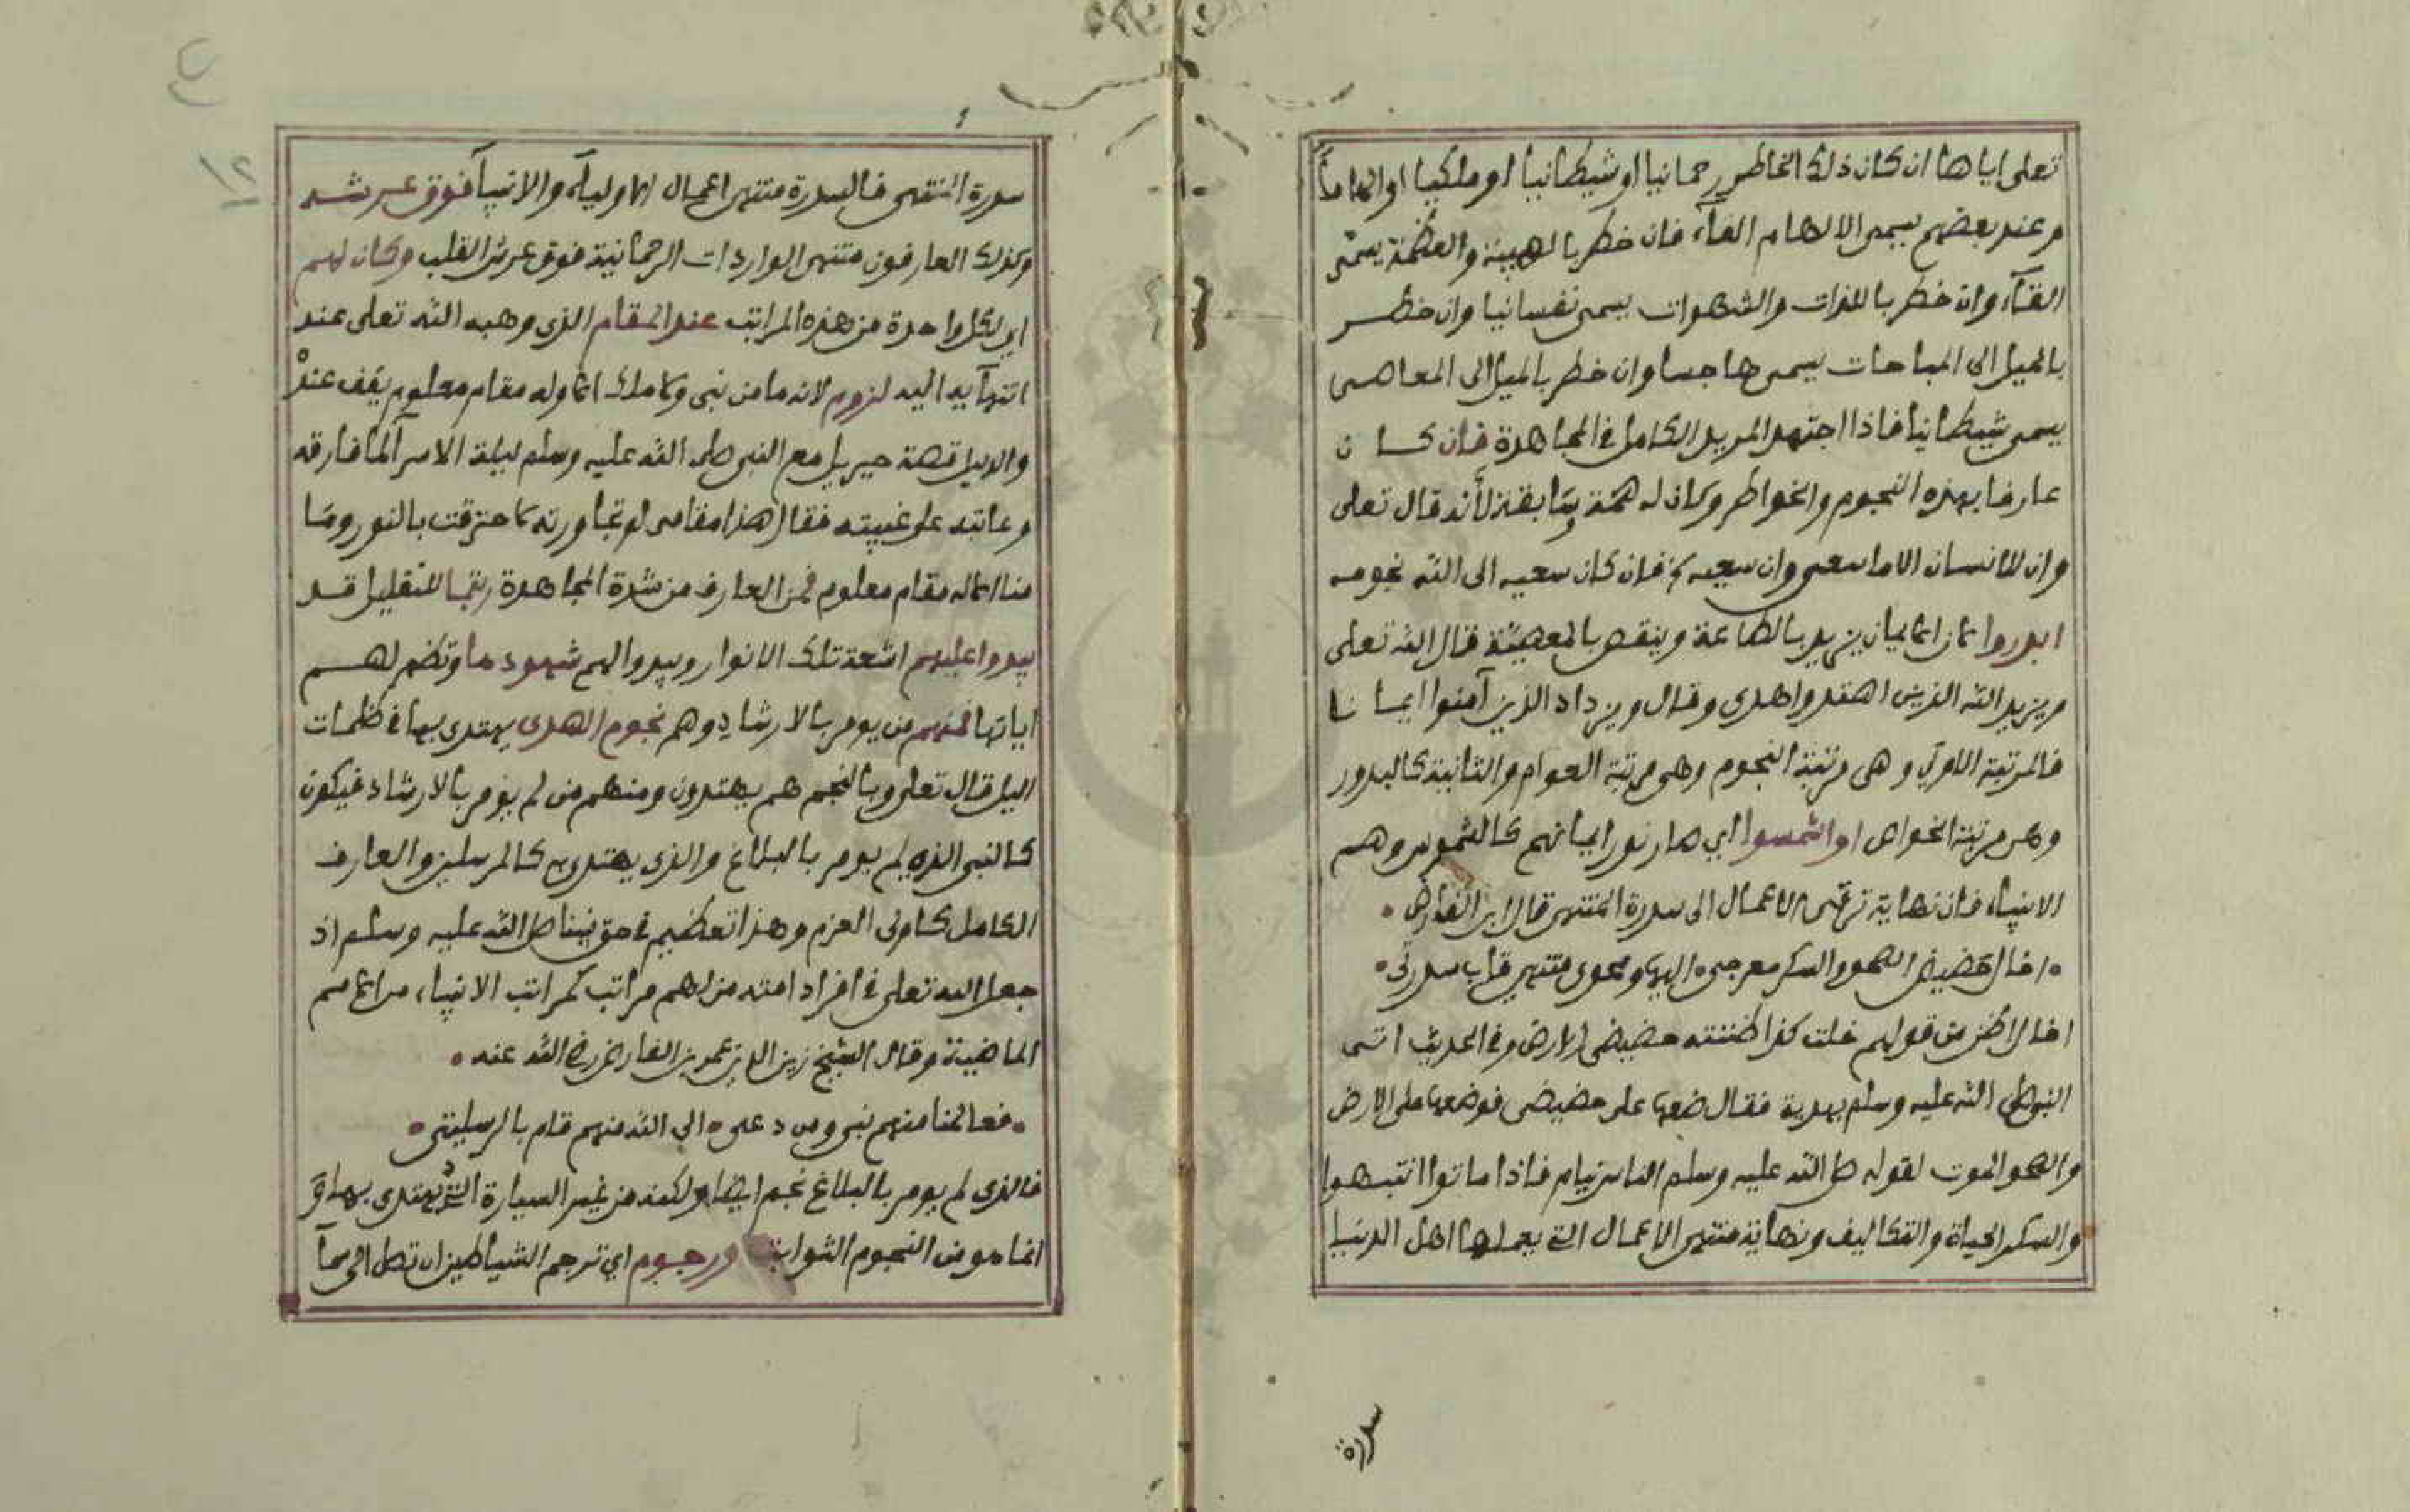 تعلى اياها ان كان ذلك الخاطر رحمانيا او شيطانيا او ملكيا او الهاماً
وعند بعضهم يسمى الالهام القآء فان خطر بالهيبة والعظمة يسمّى
القآء وان خطر باللذات والشهوات يسمى نفسانيا وان خطر
بالميل الى المباحات يسمى هاجسا وان خطر بالميل الى المعاصى
يسمى شيطانيا فاذا اجتهد المريد الكامل في المجاهدة فان كان
عارفا بهذه النجوم والخواطر وكان له همّة وسابقة لأنه قال تعلى
وان للانسان الاما سعى وان سعيه فان كان سعيه الى الله نجومه
ابدروا لان الايمان يزيد بالطاعة وينقص بالمعصيّة قال الله تعلى
ويزيد الله الذين اهتدوا هدى وقال ويزداد الذين آمنوا ايمانا
فالمرتبة الاولى وهى مرتبة النجوم وهى مرتبة العوام والثانية كالبدور
وهى مرتبة الخواص او اشمسوا اي صار نور ايمانهم كالشموس وهم
الانبياء فان نهاية ترقّى الاعمال الى سدرة المنتهى قال ابن الفارض
اخال حضيض الصحو والسكر معرجى اليها ومحوى منتهى قاب سدرتى
اخال اظن من قولهم خلت كذا ظننته حضيض الارض وفي الحديث اتى
النبي صلى الله عليه وسلم بهدية فقال ضعها على حضيض فوضعها على الارض
والصحو الموت لقوله صلى الله عليه وسلم الناس نيام فاذا ماتوا انتبهوا
والسكر الحياة والتكاليف ونهاية منتهى الاعمال التي يعملها اهل الدنيا
سدرة
سدرة المنتهى فالسدرة منتهى اعمال الاوليآء والانبيآ فوق عرشه
وكذلك العارفون منتهى الواردات الرحمانية فوق عرش القلب وكان لهم
اي لكل واحدة من هذه المراتب عند المقام الذى وهبه الله تعلى عند
انتهآيه اليه لزوم لانه ما من نبى ولا ملك الا وله مقام معلوم يقف عنده
والدليل قصة جبريل مع النبى صلى الله عليه وسلم ليلة الاسرآ لما فارقه
وعاتبه على غيبته فقال هذا مقامى لو تجاورته لاحترقت بالنور وما
منا الا له مقام معلوم فمن العارف من شدة المجاهدة ربّما للتقليل قد
يبدوا عليهم اشعة تلك الانوار ويبدوا لهم شهودها وتظهر لهم
اياتها فمنهم من يومر بالارشاد وهم نجوم الهدى يهتدى بها في ظلمات
اليل قال تعلى وبالنجم هم يهتدون ومنهم من لم يؤمر بالارشاد فيكون
كالنبى الذى لم يومر بالبلاغ والذى يهتدى به كالمرسلين والعارف
الكامل كاولى العزم وهذا تعظيم في حق نبينا صلى الله عليه وسلم اذ
جعل الله تعلى في افراد امته من لهم مراتب كمراتب الانبياء من الامم
الماضية وقال الشيخ زين الدين عمر بن الفارض رضى الله عنه
فعالمنا منهم نبى ومن دعى الى الله منهم قام بالرسليتى
فالذى لم يومر بالبلاغ نجم ايضا ولكنه من غير السيارة التى يهتدى بها و
انما هو من النجوم الثوابت ورجوم اي ترجم الشياطين ان تصل الى سمآ